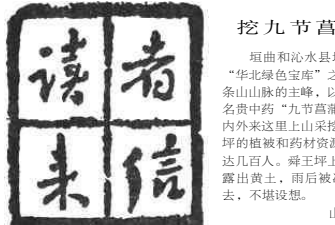 读者
来信
挖九节菖
垣曲和沁水县
“华北绿色宝库”之
条山山脉的主峰，以
名贵中药“九节菖蒲
内外来这里上山采挖
坪的植被和药材资源
达几百人。舜王坪上
露出黄土，雨后被
去，不堪设想。